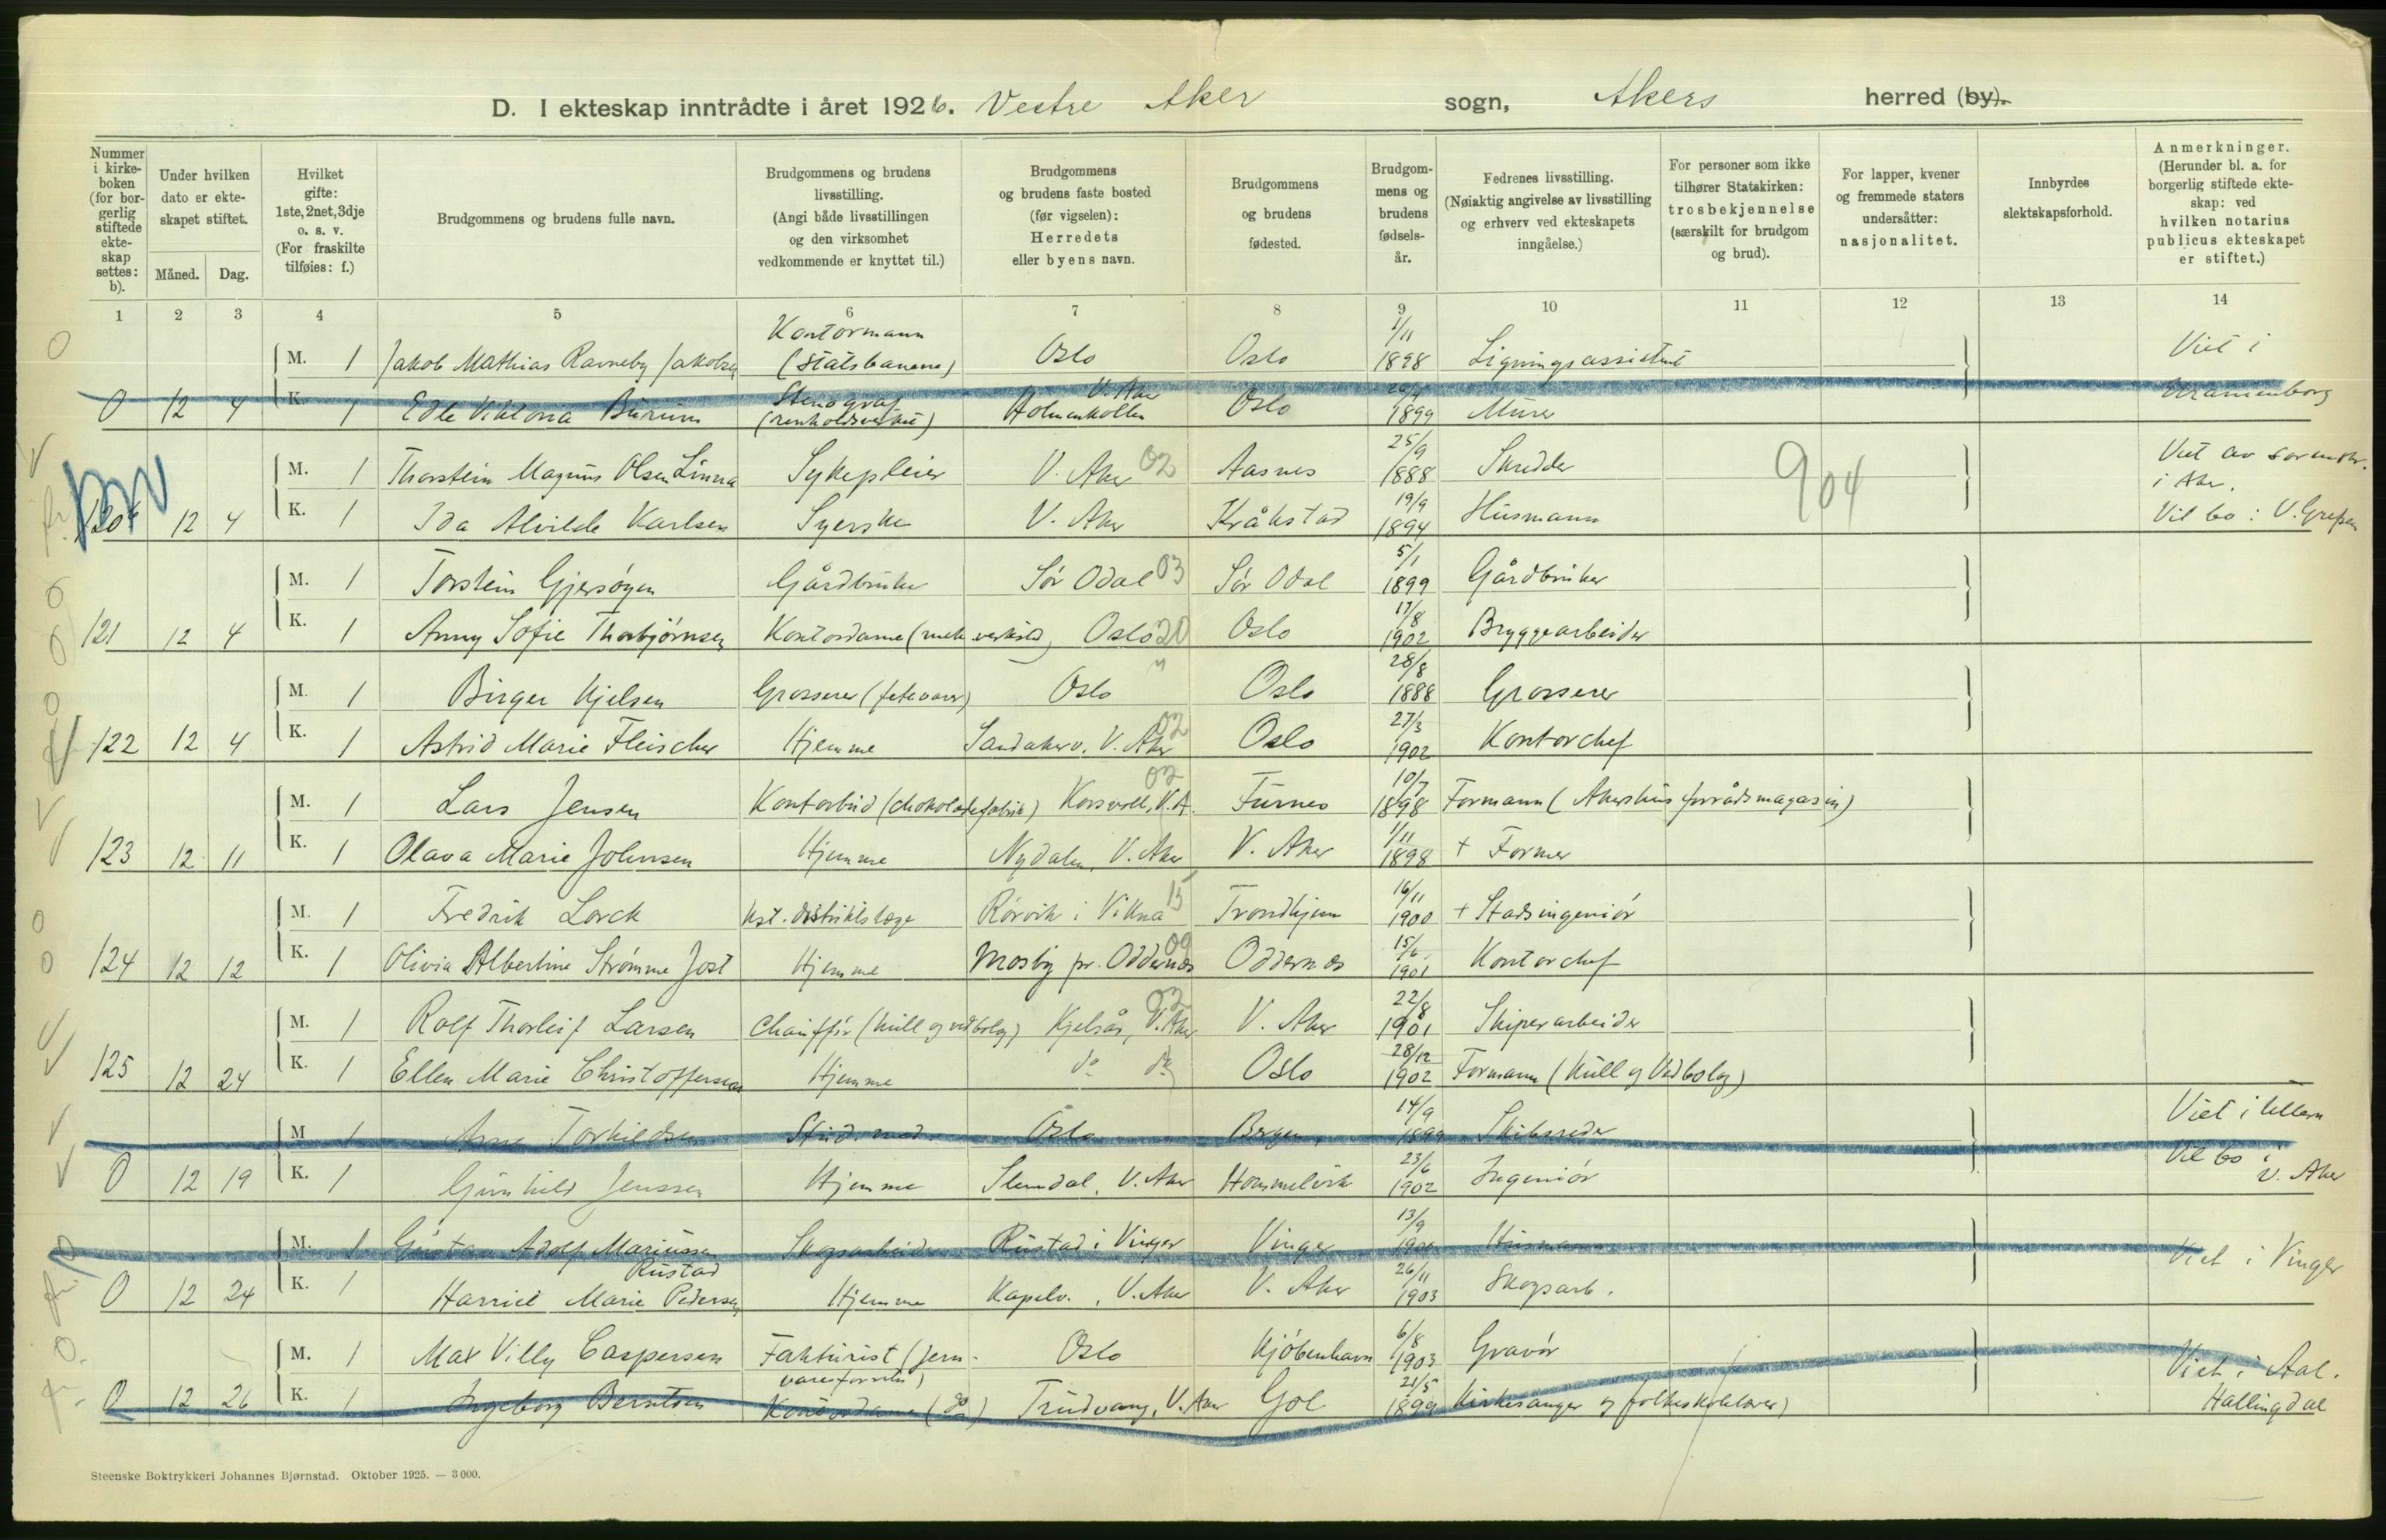 D. I ekteskap inntrådte i året 1926. Vestre Aker sogn, Akers herred (by).
Nummer i kirkeboken (for borgerlig stiftede ekteskap settes: b).
Under hvilken dato er ekteskapet stiftet.
Måned. Dag.
Hvilket gifte: 1ste, 2net, 3dje o. s. v. (For fraskilte tilføies: f.)
Brudgommens og brudens fulle navn.
Brudgommens og brudens livsstilling. (Angi både livsstillingen og den virksomhet vedkommende er knyttet til.)
Brudgommens og brudens faste bosted (før vigselen): Herredets eller byens navn.
Brudgommens og brudens fødested.
Brudgommens og brudens fødselsår.
Fedrenes livsstilling. (Nøiaktig angivelse av livsstilling og erhverv ved ekteskapets inngåelse.)
For personer som ikke tilhører Statskirken: trosbekjennelse (særskilt for brudgom og brud).
For lapper, kvener og fremmede staters undersåtter: nasjonalitet.
Innbyrdes slektskapsforhold.
Anmerkninger. (Herunder bl. a. for borgerlig stiftede ekteskap: ved hvilken notarius publicus ekteskapet er stiftet.)
1 2 3 4 5 6 7 8 9 10 11 12 13 14
M. 1 Jakob Mathias Ravneby Jakobsen Kontormann (Statsbanene) Oslo Oslo 1/11 1898 Ligningsassistent Viet i
0 12 4 K. 1 Edle Viktoria Burum Stenograf V. Aker Holmenkollen Oslo 1899 Murer Uranienborg
M. 1 Thorstein Magnus Olsen Linna Sykepleier V. Aker 02 Aasnes 25/9 1888 Skredder 904 Viet av sorenskr. i Aker.
120 12 4 K. 1 Ida Alvilde Karlsen Syerske V. Aker Kråkstad 19/9 1894 Husmann Vil bo: V. Grefsen
M. 1 Torstein Gjersøyen Gårdbruker Sør Odal 03 Sør Odal 5/1 1899 Gårdbruker
121 12 4 K. 1 Anny Sofie Thorbjørnsen Kontordame (mek. verksted) Oslo 20 Oslo 17/8 1902 Bryggearbeider
M. 1 Birger Kjelsen Grosserer (fetevarer) Oslo Oslo 28/8 1888 Grosserer
122 12 4 K. 1 Astrid Marie Fleischer Hjemme Sandakerv. V. Aker 02 Oslo 27/3 1902 Kontorchef
M. 1 Lars Jensen Kontorbud (chokoladefabrik) Korsvoll, V. A. 02 Furnes 10/7 1898 Formann (Akershus forrådsmagasin)
123 12 11 K. 1 Olava Marie Johnsen Hjemme Nydalen, V. Aker V. Aker 1/11 1898 + Former
M. 1 Fredrik Lorck Kst. distriktslæge Rørvik i Vikna 15 Trondhjem 16/11 1900 + Stadsingeniør
124 12 12 K. 1 Olivia Albertine Strømme Jost Hjemme Mosby pr. Oddernes 09 Oddernes 15/6 1901 Kontorchef
M. 1 Rolf Thorleif Larsen Chauffør (kull og vedbolag) Kjelsås, V. Aker 02 V. Aker 22/8 1901 Skiperarbeider
125 12 24 K. 1 Ellen Marie Christoffersen Hjemme do do Oslo 28/12 1902 Formann (Kull og Vedbolag)
M 1 Arne Torkildsen Stud. med. Oslo Bergen 14/9 1899 Skibsreder Viet i Ullern
0 12 19 K. 1 Gunhild Jenssen Hjemme Slemdal, V. Aker Hommelvik 23/6 1902 Ingeniør Vil bo i V. Aker
M. 1 Gustav Adolf Mariussen Rustad Skogsarbeider Rustad i Vinger Vinger 13/9 Husmann Viet i Vinger
0 12 24 K. 1 Harriet Marie Pedersen Hjemme Kapelv., V. Aker V. Aker 26/11 1903 Skogsarb.
M. 1 Max Villy Caspersen Fakturist (jernvareforretn.) Oslo Kjøbenhavn 6/8 1903 Gravør Viet i Aal.
0 12 26 K. 1 Ingeborg Berntsen Kontordame (do) Trudvang, V. Aker Gol 21/5 1899 Kirkesanger og folkeskolelærer) Hallingdal
Steenske Boktrykkeri Johannes Bjørnstad. Oktober 1925. — 3 000.